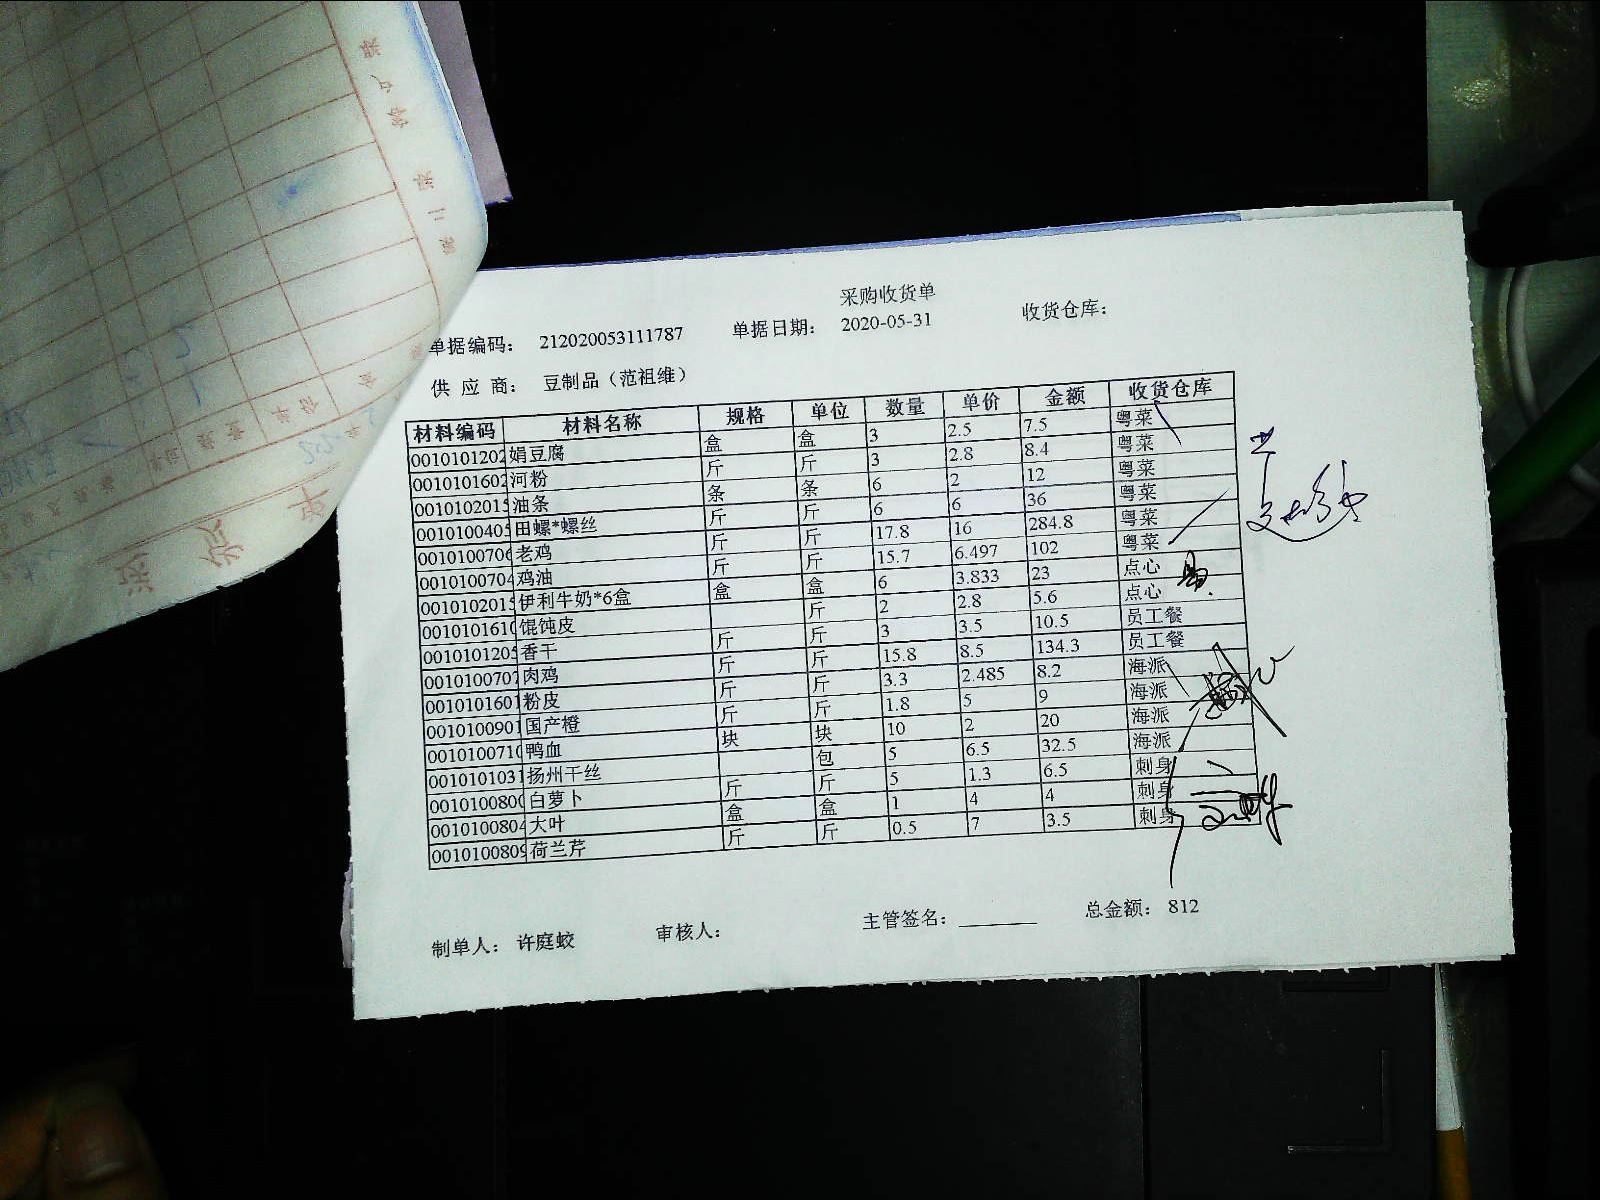 采购收货单
单据编码： 212020053111787 单据日期： 2020-05-31 收货仓库：
供 应 商： 豆制品（范祖维）
材料编码 材料名称 规格 单位 数量 单价 金额 收货仓库
0010101202 娟豆腐 盒 盒 3 2.5 7.5 粤菜
0010101602 河粉 斤 斤 3 2.8 8.4 粤菜
0010102015 油条 条 条 6 2 12 粤菜
0010100405 田螺*螺丝 斤 斤 6 6 36 粤菜
0010100706 老鸡 斤 斤 17.8 16 284.8 粤菜
0010100704 鸡油 斤 斤 15.7 6.497 102 粤菜
0010102015 伊利牛奶*6盒 盒 盒 6 3.833 23 点心
0010101610 馄饨皮 斤 2 2.8 5.6 点心
0010101205 香干 斤 斤 3 3.5 10.5 员工餐
0010100707 肉鸡 斤 斤 15.8 8.5 134.3 员工餐
0010101601 粉皮 斤 斤 3.3 2.485 8.2 海派
0010100901 国产橙 斤 斤 1.8 5 9 海派
0010100710 鸭血 块 块 10 2 20 海派
0010101031 扬州干丝 包 5 6.5 32.5 海派
0010100800 白萝卜 斤 斤 5 1.3 6.5 刺身
0010100804 大叶 盒 盒 1 4 4 刺身
0010100809 荷兰芹 斤 斤 0.5 7 3.5 刺身
制单人： 许庭蛟 审核人： 主管签名： 总金额： 812